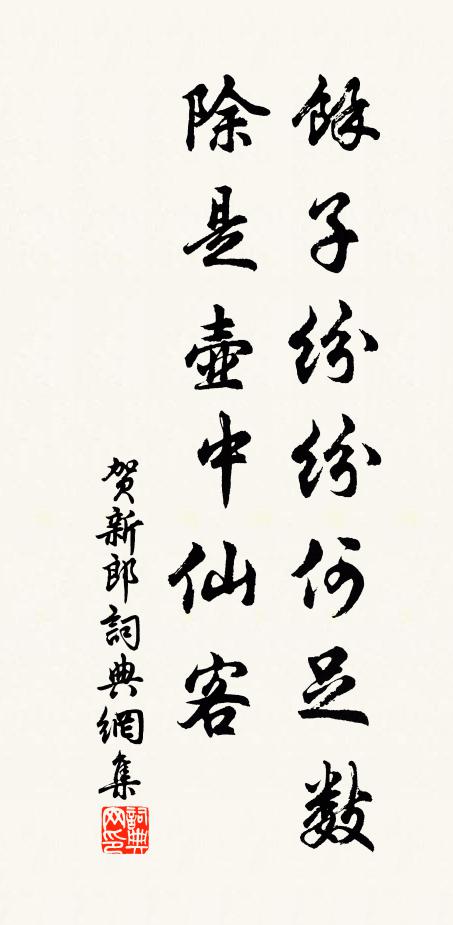 餘子紛紛何足數
除是壺中仙客
賀新郎詞典網集
詞典网印